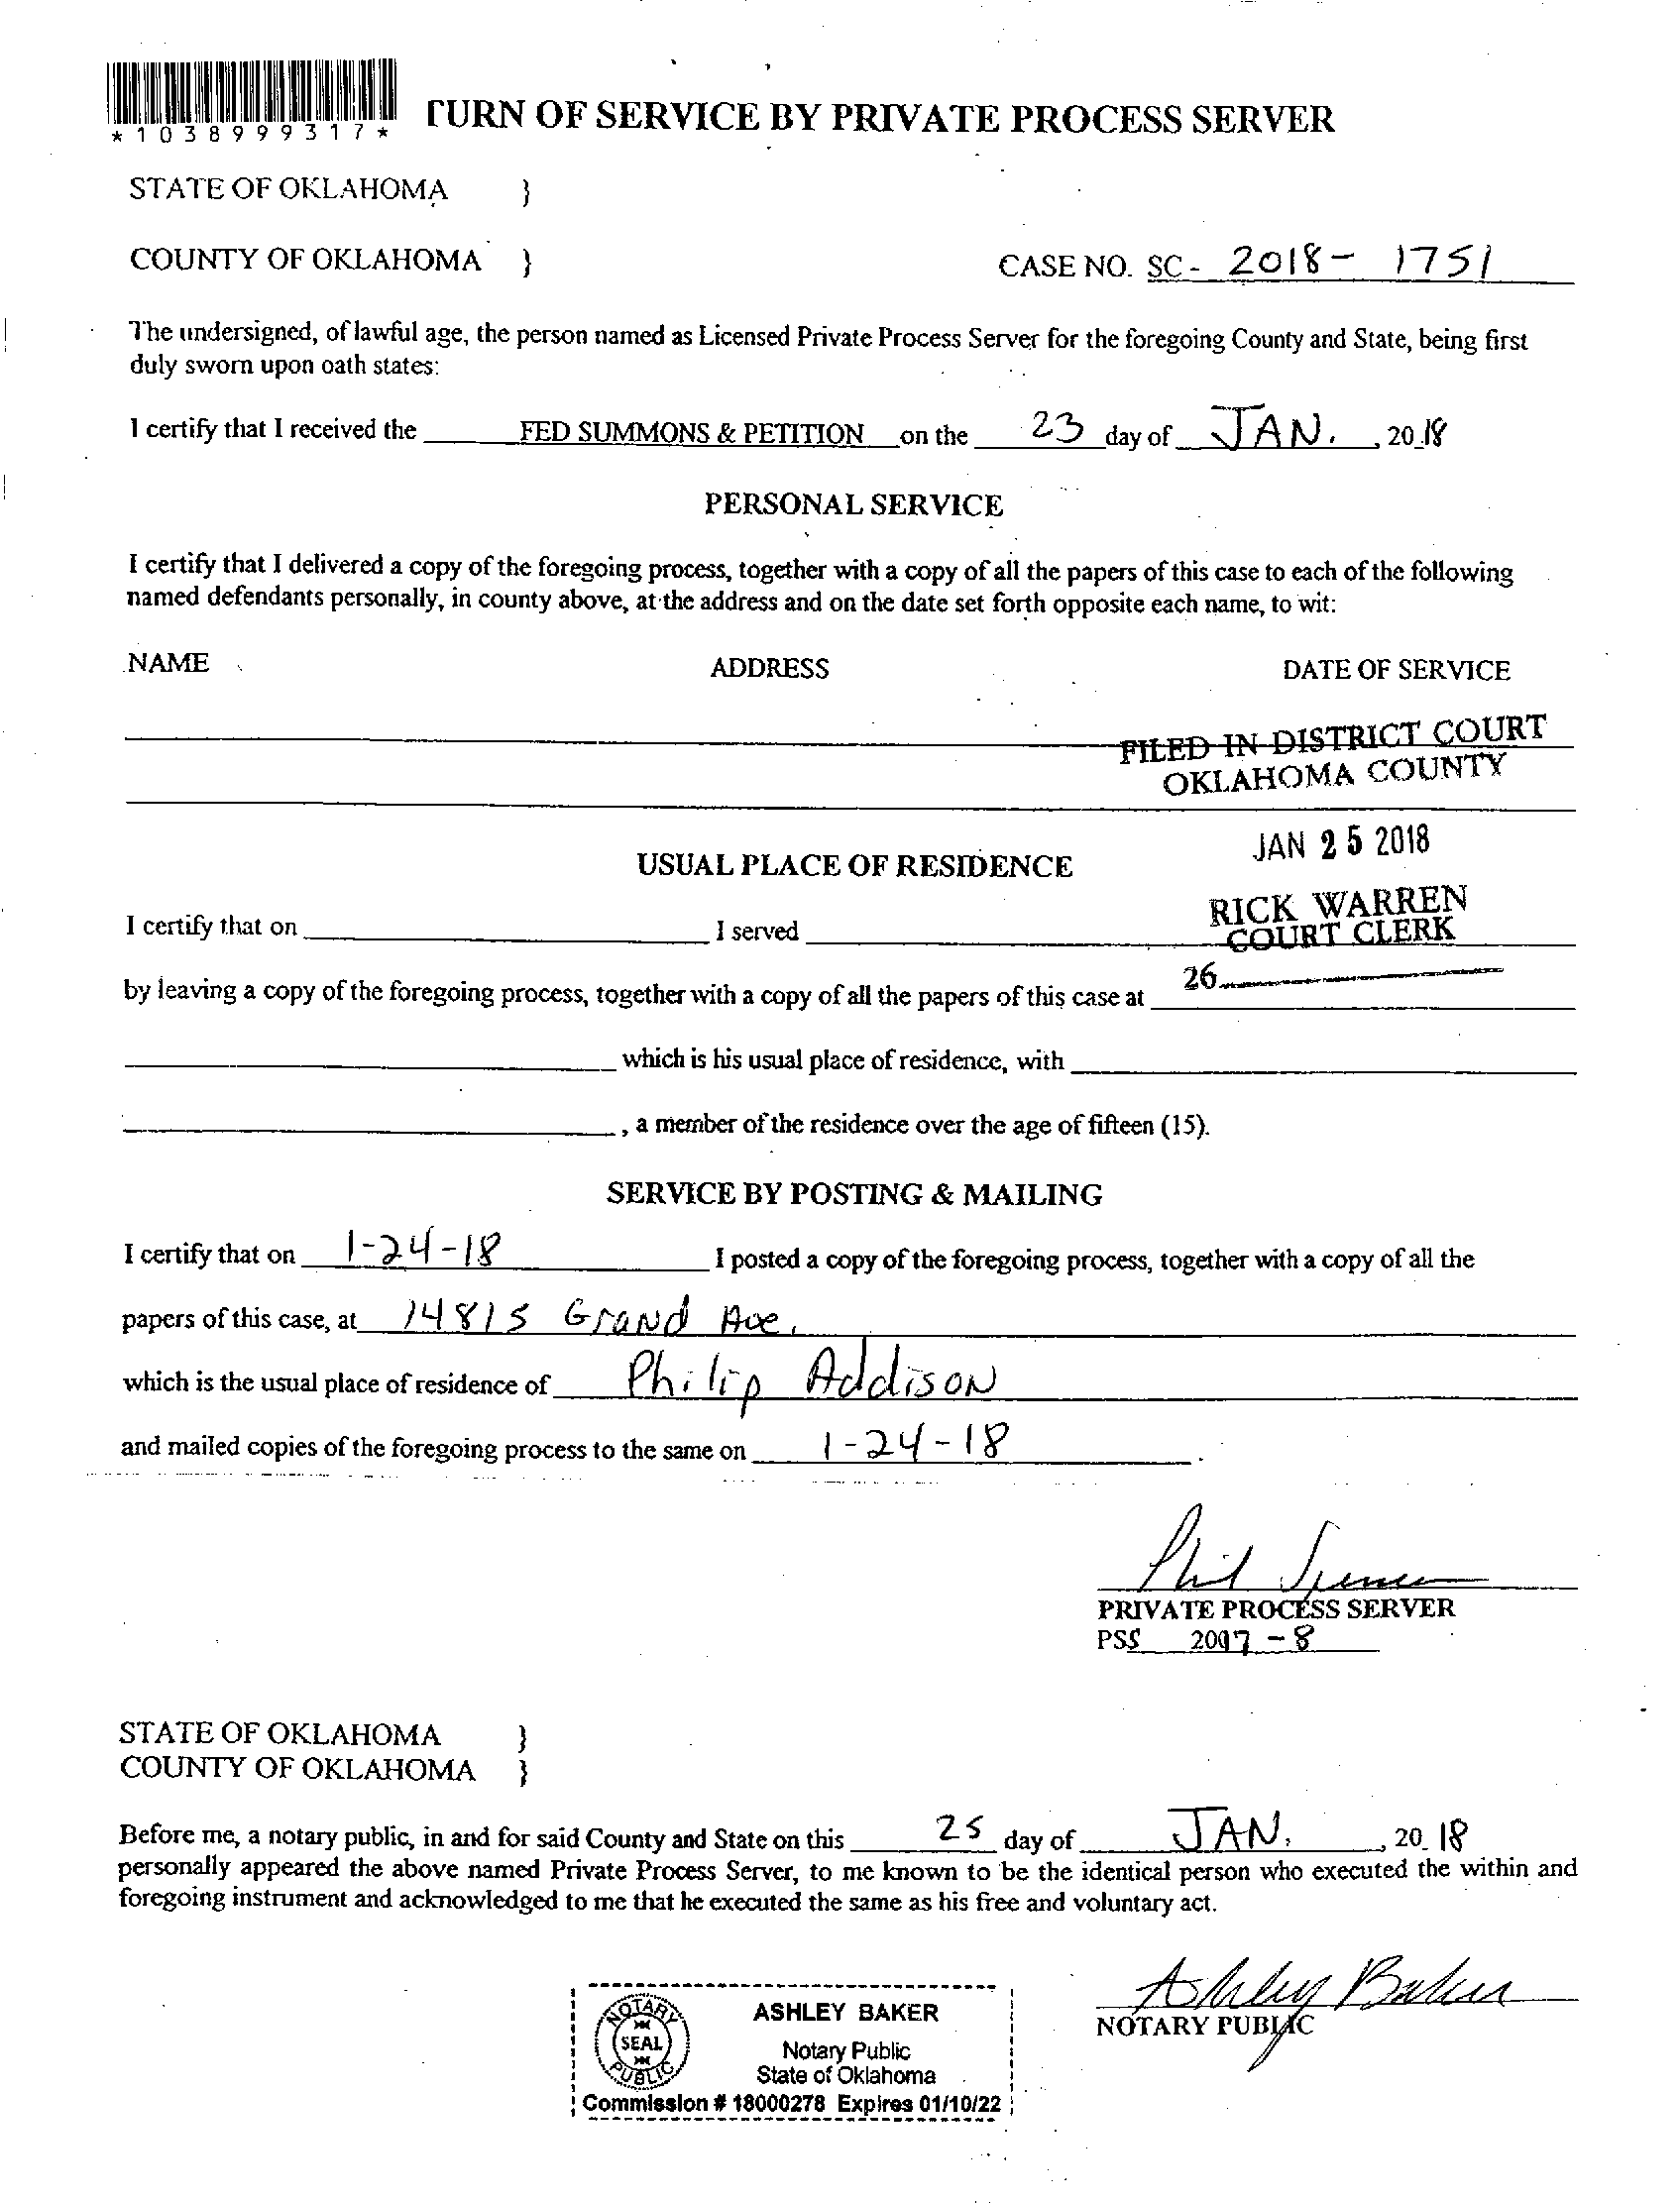 *1038999317*
TURN OF SERVICE BY PRIVATE PROCESS SERVER
STATE OF OKLAHOMA }
COUNTY OF OKLAHOMA } CASE NO. SC- 2018- 1751
The undersigned, of lawful age, the person named as Licensed Private Process Server for the foregoing County and State, being first
duly sworn upon oath states:
I certify that I received the FED SUMMONS & PETITION on the 23 day of JAN. , 2018
PERSONAL SERVICE
I certify that I delivered a copy of the foregoing process, together with a copy of all the papers of this case to each of the following
named defendants personally, in county above, at the address and on the date set forth opposite each name, to wit:
NAME ADDRESS DATE OF SERVICE
FILED IN DISTRICT COURT
OKLAHOMA COUNTY
JAN 25 2018
USUAL PLACE OF RESIDENCE
RICK WARREN
COURT CLERK
I certify that on I served
26
by leaving a copy of the foregoing process, together with a copy of all the papers of this case at
which is his usual place of residence, with
, a member of the residence over the age of fifteen (15).
SERVICE BY POSTING & MAILING
I certify that on 1-24-18 I posted a copy of the foregoing process, together with a copy of all the
papers of this case, at 14815 Grand Ave.
which is the usual place of residence of Philip Addison
and mailed copies of the foregoing process to the same on 1-24-18 .
Phil
PRIVATE PROCESS SERVER
PSS 2017-8
STATE OF OKLAHOMA }
COUNTY OF OKLAHOMA }
Before me, a notary public, in and for said County and State on this 25 day of JAN. , 20 18
personally appeared the above named Private Process Server, to me known to be the identical person who executed the within and
foregoing instrument and acknowledged to me that he executed the same as his free and voluntary act.
Ashley Baker
NOTARY PUBLIC
NOTARY SEAL PUBLIC
ASHLEY BAKER
Notary Public
State of Oklahoma
Commission # 18000278 Expires 01/10/22